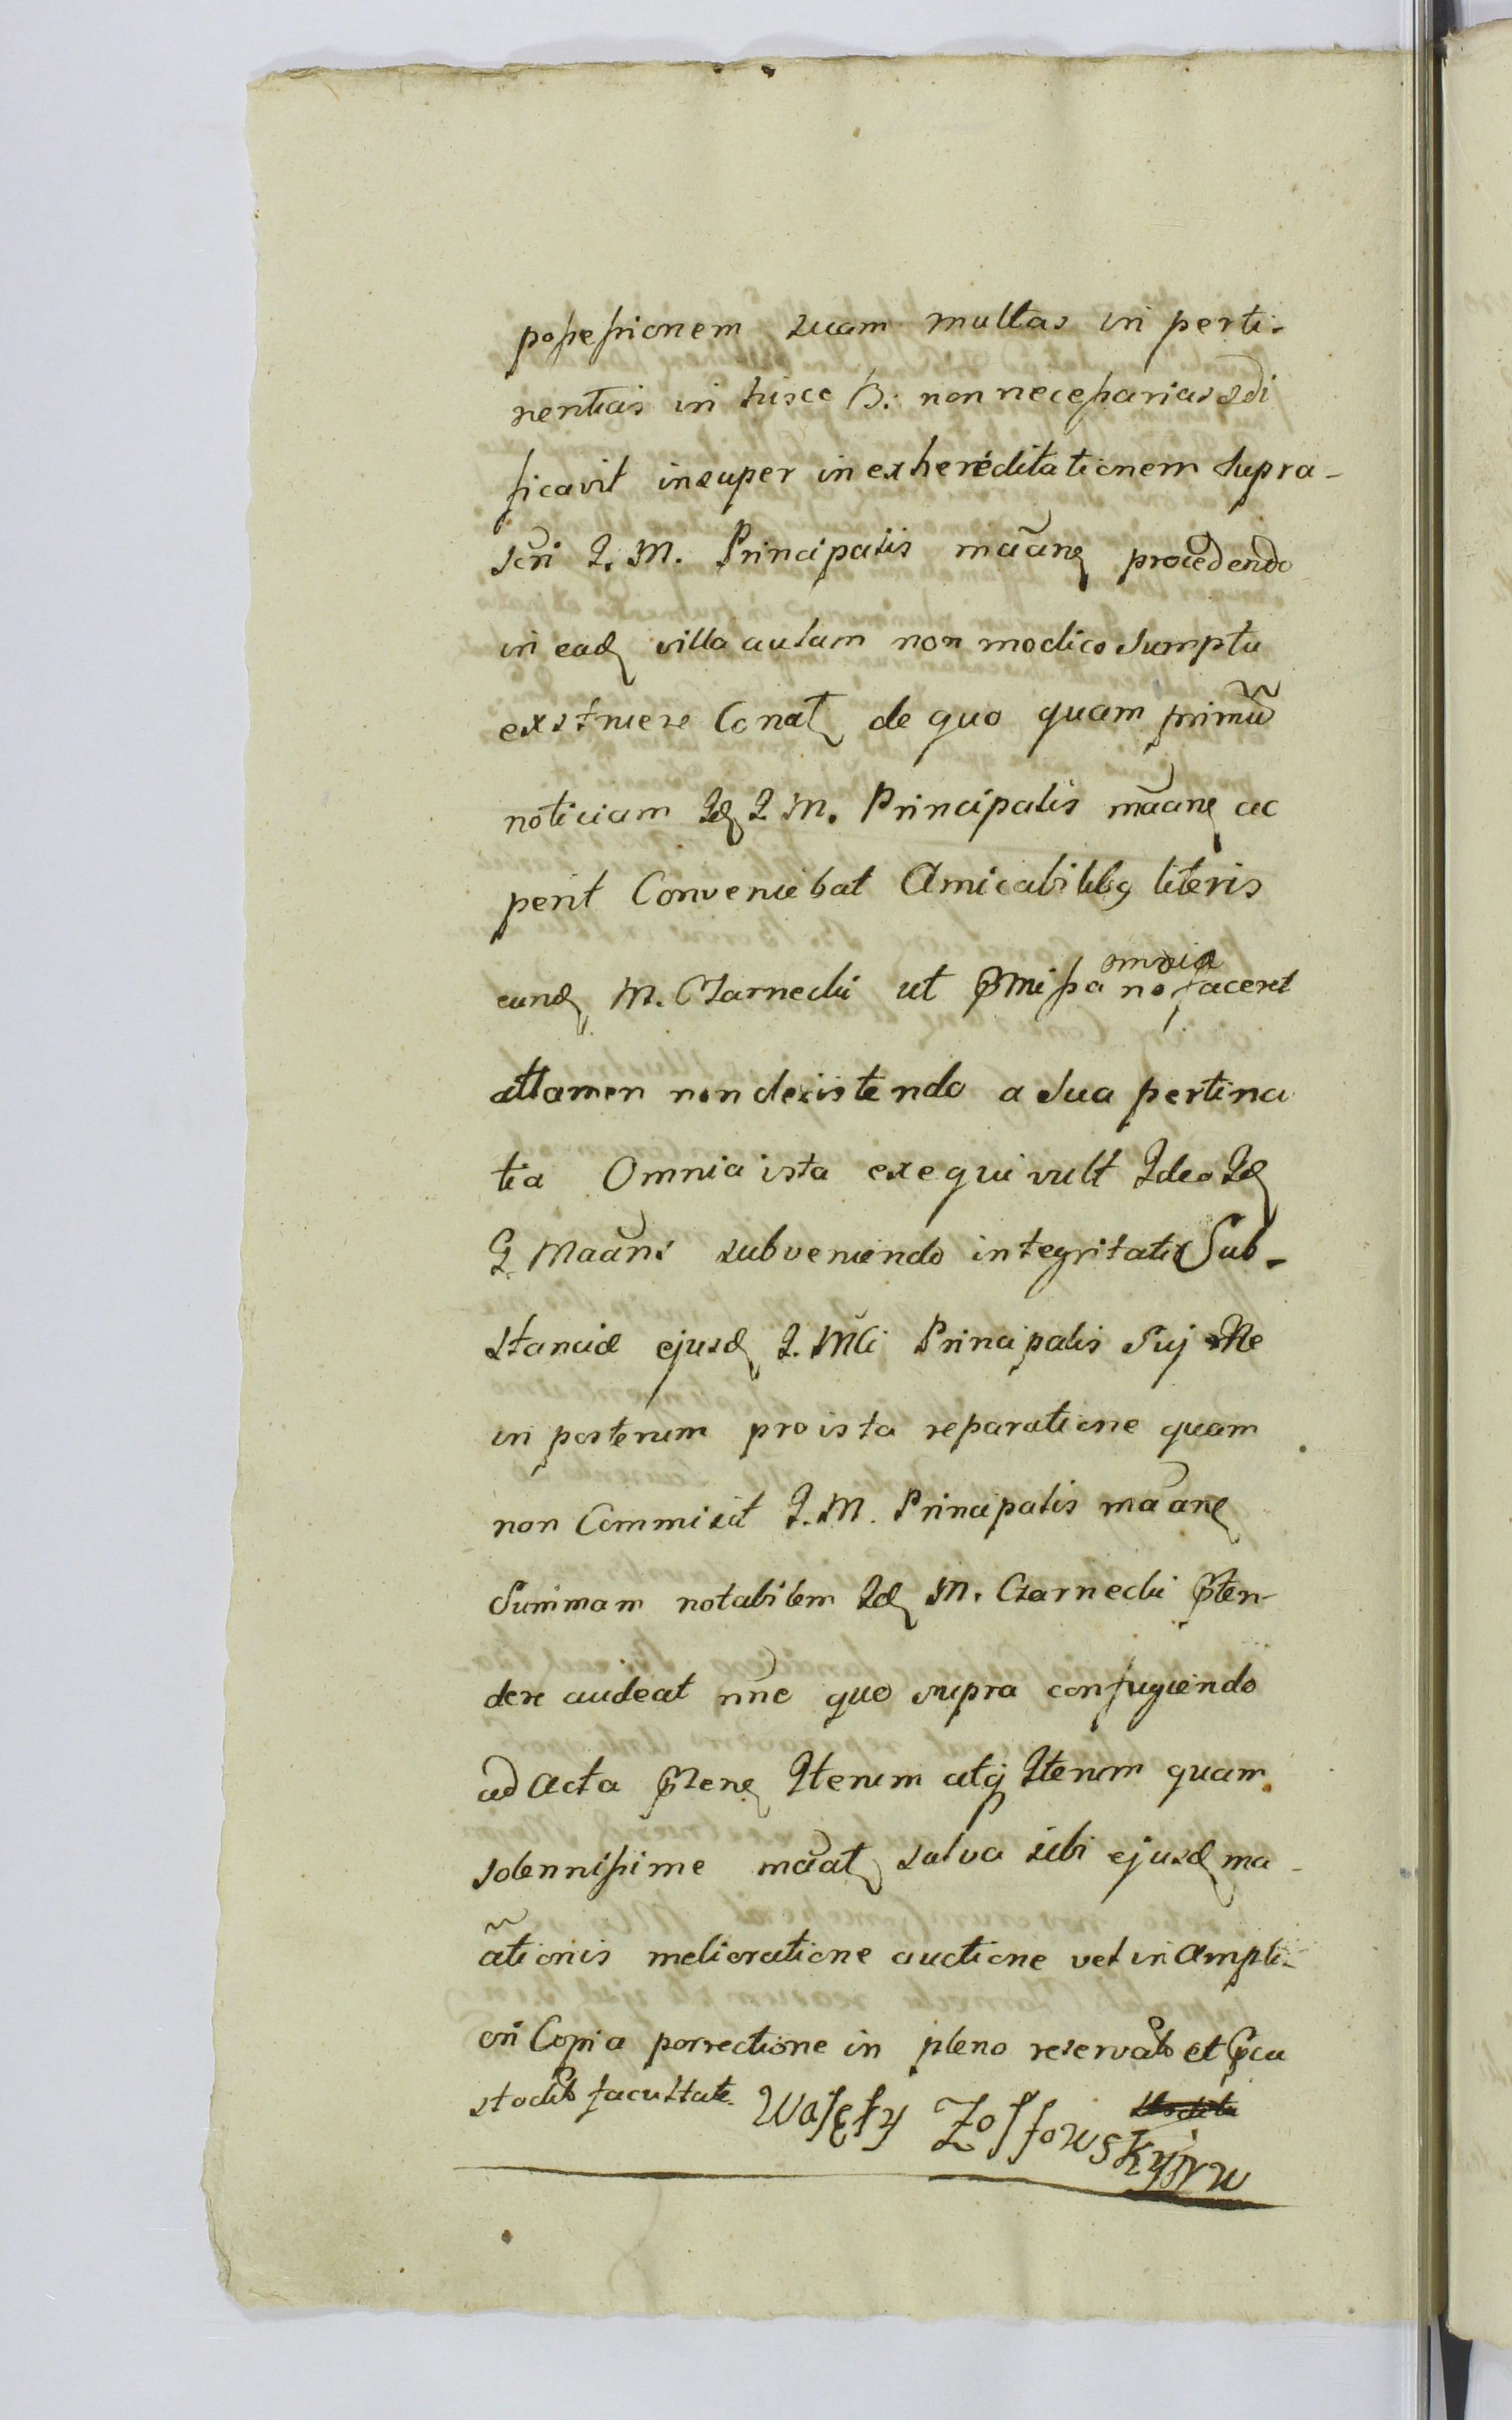 possessionem suam multas in perti-
nentiis in hisce B. non necessarias ædi
ficavit insuper in exhereditationem supra-
scri I. M. Principalis mãane procedendo
in ead villa aulam non modico sumptu
exstruere Conat de quo quam primũ
noticiam Id I M. Principalis mãane ac
perit Conveniebat Amicabilibq literis
eund M. Czarnecki ut pmissa omnia no faceret
attamen non desistendo a sua pertina
tia Omnia ista exequi vult Ideo Id
G Maãns subveniendo integritati Sub-
stanciæ ejusd I. Mci Principalis Sui Ne
in posterum pro ista reparatione quam
non Commisit I. M. Principalis mãane
Summam notabilem Id M. Czarnecki pten-
dere audeat nnc quo supra confugiendo
ad Acta pzene Iterum atq Iterum quam
solennissime mãat salva sibi ejusd ma-
ãtionis melioratione auctione vel in Ampli-
ori Copia porrectione in pleno reservato et pcu
stodita facultate. Walęty Zoffowsky mw